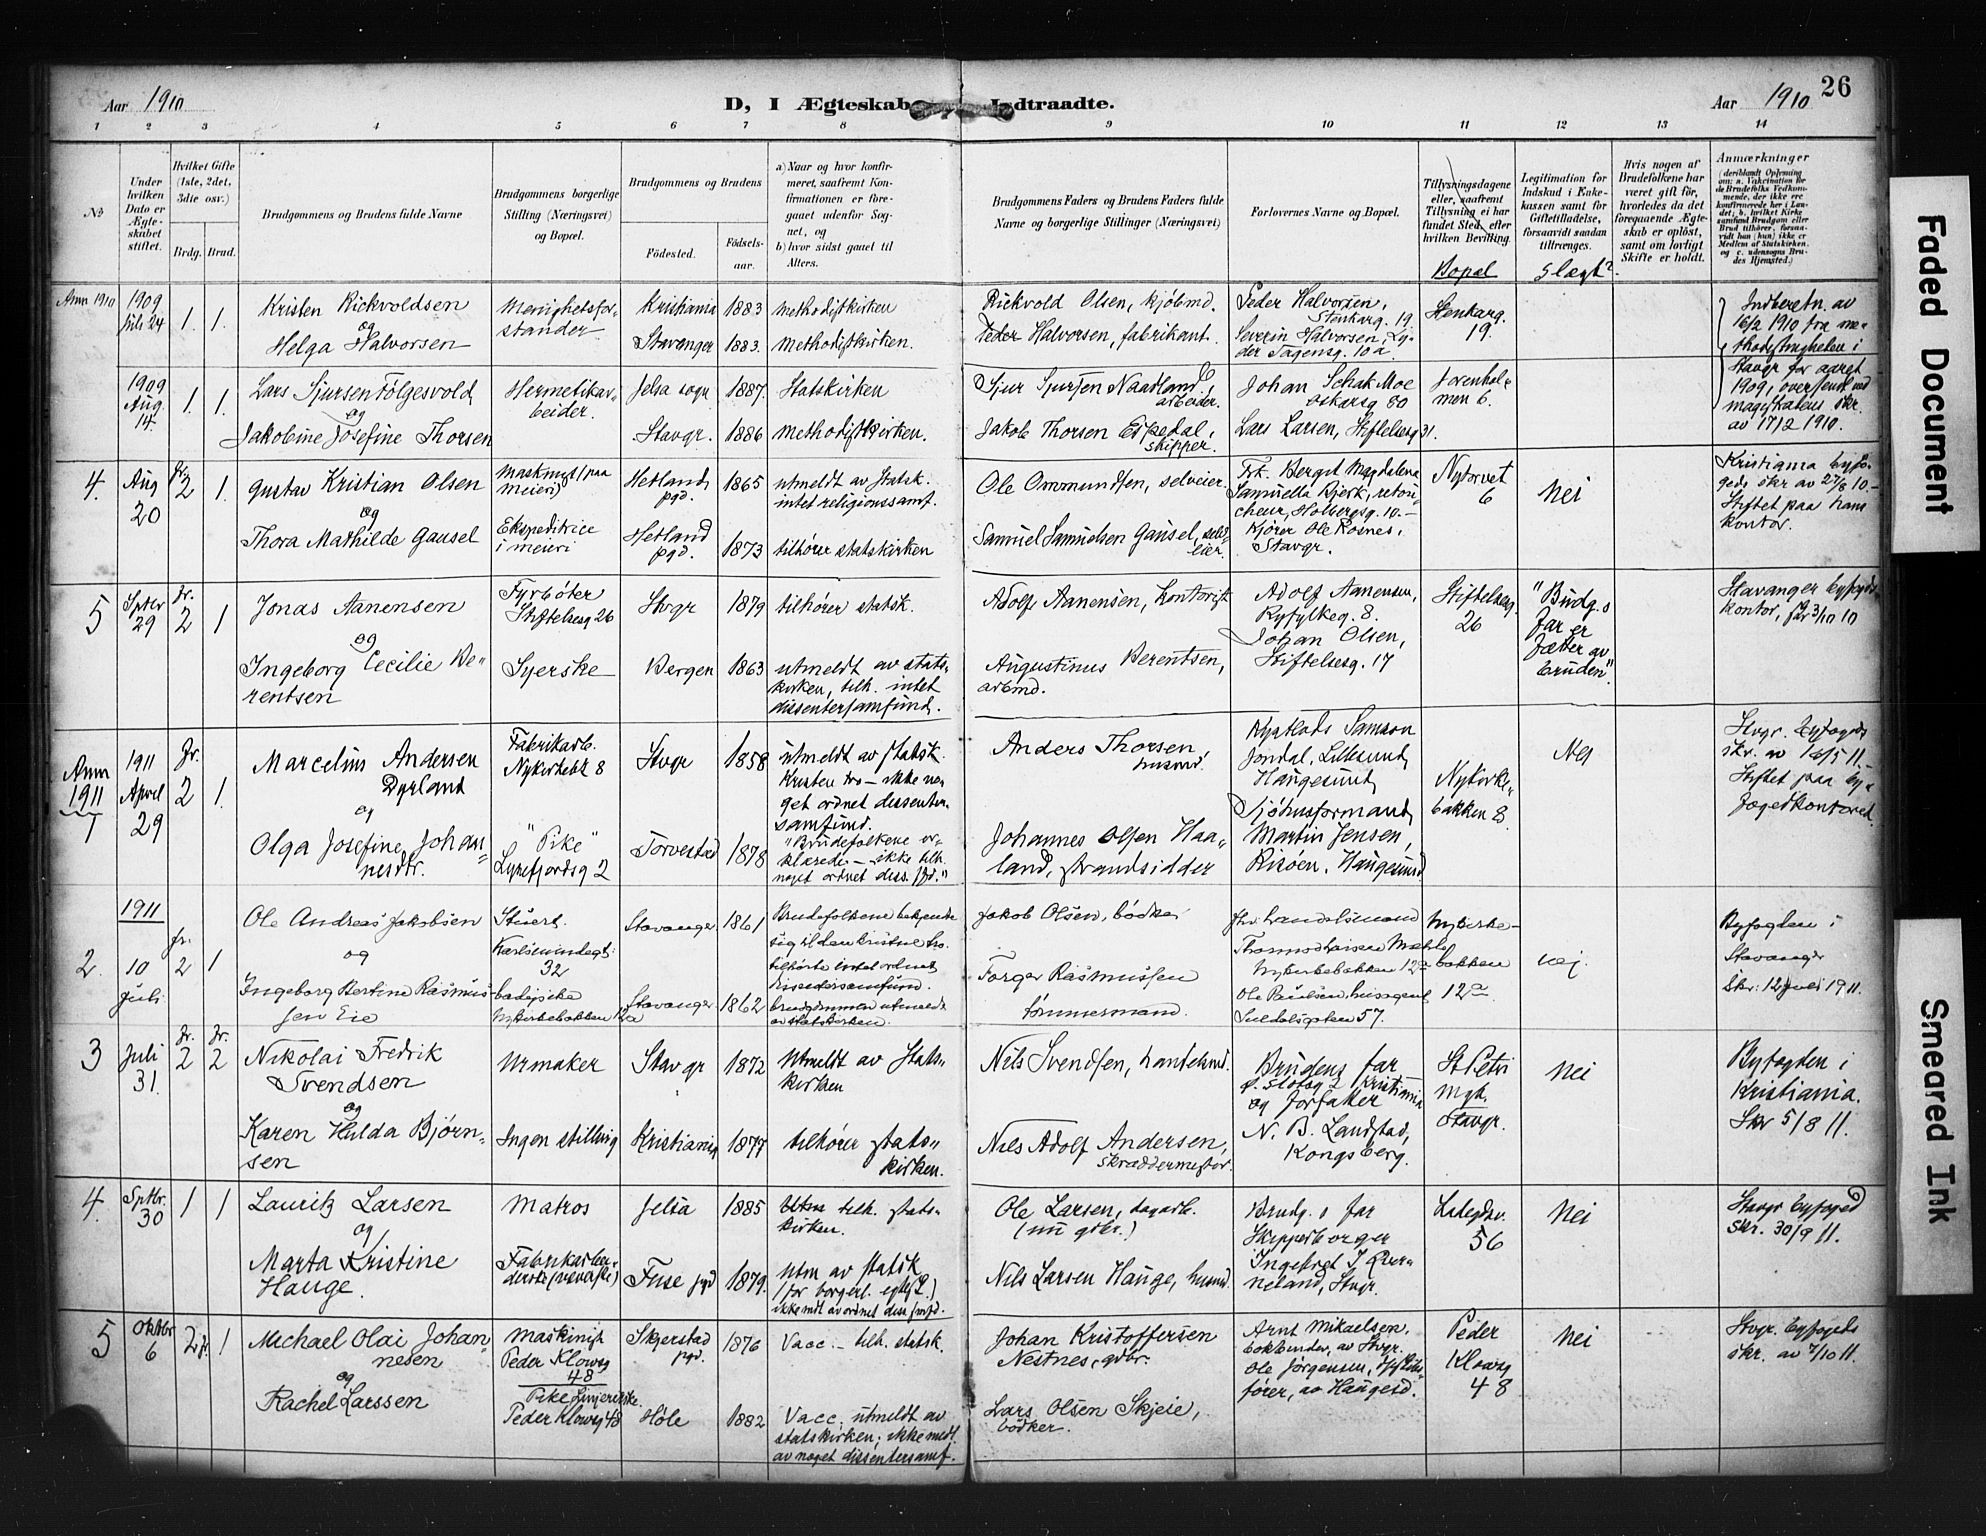 Aar 1910
D, I Ægteskab Indtraadte.
Aar 1910
26
1 2 3 4 5 6 7 8 9 10 11 12 13 14
No
Under hvilken Dato er Ægteskabet stiftet.
Hvilket Gifte (1ste, 2det, 3die osv.)
Brdg. Brud.
Brudgommens og Brudens fulde Navne
Brudgommens borgerlige Stilling (Næringsvei) og Bopæl.
Brudgommens og Brudens
Fødested.
Fødselsaar.
a) Naar og hvor konfirmeret, saafremt Konfirmationen er foregaaet udenfor Sognet, og
b) hvor sidst gaaet til Alters.
Brudgommens Faders og Brudens Faders fulde Navne og borgerlige Stillinger (Næringsvei)
Forlovernes Navne og Bopæl.
Tillysningsdagene eller, saafremt Tillysning ei har fundet Sted, efter hvilken Bevilling.
Bopæl
Legitimation for Indskud i Enkekassen samt for Giftetilladelse, forsaavidt saadan tiltrænges.
Slægt?
Hvis nogen af Brudefolkene har været gift før, hvorledes da det foregaaende Ægteskab er opløst, samt om lovligt Skifte er holdt.
Anmærkninger
(deriblandt Oplysning om: a. Vakcination for de Brudefolks Vedkommende, der ikke ere konfirmerede her i Landet; b. hvilket Kirkesamfund Brudgom eller Brud tilhører, forsaavidt han (hun) ikke er Medlem af Statskirken, og c. udensogns Brudes Hjemsted.)
Anm 1910
1909
Juli 24
1. 1.
Kristen Rickvoldsen
og
Helga Halvorsen
Menighetsforstander
Kristiania 1883 Methodistkirken
Stavanger 1883. Methodistkirken.
Rickvold Olsen, kjøbmd.
Peder Halvorsen, fabrikant.
Peder Halvorsen,
Stenkarg. 19
Severin Halvorsen,
Stenkarg.
19.
Indberetn. av
16/2 1910 fra methodistmenigheten i
Stavgr for aaret
1909, oversendt ved
magistratens skr.
av 17/2 1910.
1909
Aug.
14.
1. 1.
Lars Sjursen Følgesvold
og
Jakobine Josefine Thorsen
Hermetikarbeider.
Jelsa sogn 1887. Statskirken
Stavgr. 1886 Methodistkirken.
Sjur Sjursen Naadland,
arbeider.
Jakob Thorsen Espedal,
skipper.
Johan Schak Moe
Oskarsg 80
Lars Larsen, Stiftelsesg 31.
Jorenholmen 6.
4.
Aug
20
fr.
2 1.
Gustav Kristian Olsen
og
Thora Mathilde Gausel
Maskinist (paa
meieri)
Ekspeditrice
i meieri
Hetland
pgd.
1865
utmeldt av Statsk.
intet religionssamf.
Hetland
pgd.
1873
tilhører statskirken
Ole Ommundsen, selveier.
Samuel Samuelsen Gausel, selveier.
Frk. Bergit Magdalena
Samuella Bjerk, retoucheur, Holbergsg. 10.
Kjører Ole Rosnes,
Stavgr.
Nytorvet
6
Nei
Kristiania byfogeds skr av 27/8 10.
Stiftet paa hans
kontor.
5
Septbr
29
fr.
2 1
Jonas Aanensen
og
Ingeborg Cecilie Berentsen
Fyrbøter
Stiftelsesg 26
Syerske
Stvgr 1879 tilhører statsk.
Bergen 1863
utmeldt av statskirken, tilh. intet
dissentersamfund.
Adolf Aanensen, kontorist
Augustinus Berentsen,
arbmd.
Adolf Aanensen,
Ryfylkeg. 8.
Johan Olsen,
Stiftelsesg. 17
Stiftelsesg.
26
"Brudg.s
far er
fætter av
bruden".
Stavanger byfogdkontor, skr 3/10 10
Anm
1911
1
1911
April
29
fr.
2 1
Marcelius Andersen
Dyrland
og
Olga Josefine Johannesdtr.
Fabrikarb.
Nykirkebk 8
"Pike"
Lysefjordsg 2
Stvgr 1858
utmeldt av statsk.
kristen tro – ikke noget ordnet dissentersamfund.
Torvestad 1878
"Brudefolkene erklærede – ikke tilh.
noget ordnet diss. sfd."
Anders Thorsen,
husmd.
Johannes Olsen Haaland, strandsidder
Samson
Jondal, Lillesund,
Haugesund
Sjøhusformand,
Martin Jensen,
Risøen, Haugesund
Nykirkebakken 8.
Nei
Stvgr. byfogds
skr. av 16/5 11.
Stiftet paa byfogedkontoret.
1911
2.
10
Juli
fr.
2 1
Ole Andreas Jakobsen
og
Ingeborg Bertine Rasmussen Eie
Stuert.
Karlsminde gt.
32
Nykirkebakken 12a
Stavanger 1861
Brudefolkene bekjende
sig til den kristne tro.
tilhørte intet ordnet
dissentersamfund.
Stavanger 1862
brudgommen utmeldt
av statskirken.
Jakob Olsen, bødker
Torger Rasmussen
tømmermand.
Nykirkebakken 12a
Ole Paulsen,
Suldalsgaten 57.
Nykirkebakken
12a
nej
Byfogden i
Stavanger
Skr. 12 juli 1911.
3
Juli
31.
fr. fr.
2 2
Nikolai Fredrik
Svendsen
og
Karen Hulda Bjørnsen
Urmaker
Ingen stilling
Stavgr 1872
Utmeldt av Statskirken
Kristiania 1877
tilhører statskirken.
Nils Svendsen, handelsmd.
Nils Adolf Andersen,
skræddermester.
Brudens far
Ø. Slotsg 2 Kristiania
og forfatter
N. B. Landstad,
Kongsberg.
St Petri
mgh.
Stavgr.
Nei
Byfogden i
Kristiania.
Skr 5/8 11.
4.
Sptbr.
30
1 1
Lauritz Larsen
og
Marta Kristine
Hauge.
Matros
Fabrikarbeiderske
Jelsa 1885
Utm tilh. statskirken.
Fuse pgd 1879.
Utm av statsk
(for borgerl. egtsk.)
ikke mdt av ordnet diss sfd.
Ole Larsen, dagarb.
(nu gbr.)
Nils Larsen Hauge, husmd.
Brudg.s far
Skipperborger
Ingebret I. Kverneland, Stvgr.
56
Nei
Stavgr byfoged
skr. 30/9 11.
5
Oktbr
6
2 fr. 1
Michael Olai Johannesen
og
Rachel Larssen
Maskinist
Peder Klowsg
48
Pike
Peder Klowsg 48
Skjerstad
pgd.
1876 Vacc. – tilh. statsk.
Høle 1882
Vacc. utmeldt av
statskirken; ikke medl.
av noget dissentersamf.
Johan Kristoffersen
Nestnes, gdbr.
Lars Olsen Skjeie,
bødker.
Arnt Mikaelsen,
bokbinder, av Stvgr.
Ole Jørgensen,
av Haugesd.
Peder
Klowsg
48
Nei
Stvgr. byfogeds
skr. av 7/10 11.
Faded Document
Smeared Ink